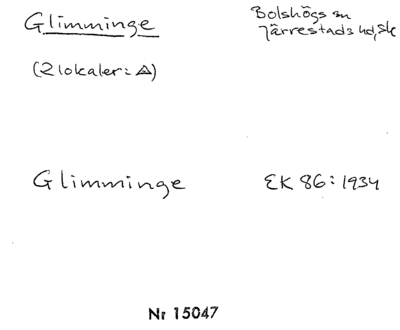 Glimminge
Bolshögs sn
Järrestads hd, Sk
(2 lokaler: ◬)
Glimminge
EK 86: 1934
Nr 15047